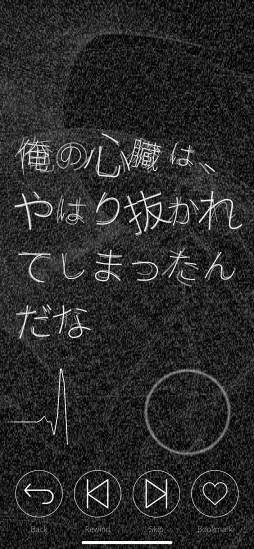 俺の心臓は、
やはり抜かれ
てしまったん
だな
Back
Rewind
Skip
Bookmark